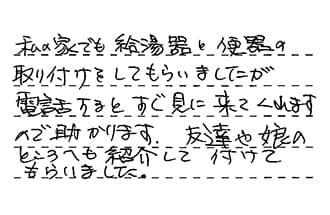 私の家でも給湯器と便器の
取り付けをしてもらいましたが
電話するとすぐ見に来てくれます
ので助かります。友達や娘の
ところへも紹介して付けて
もらいました。